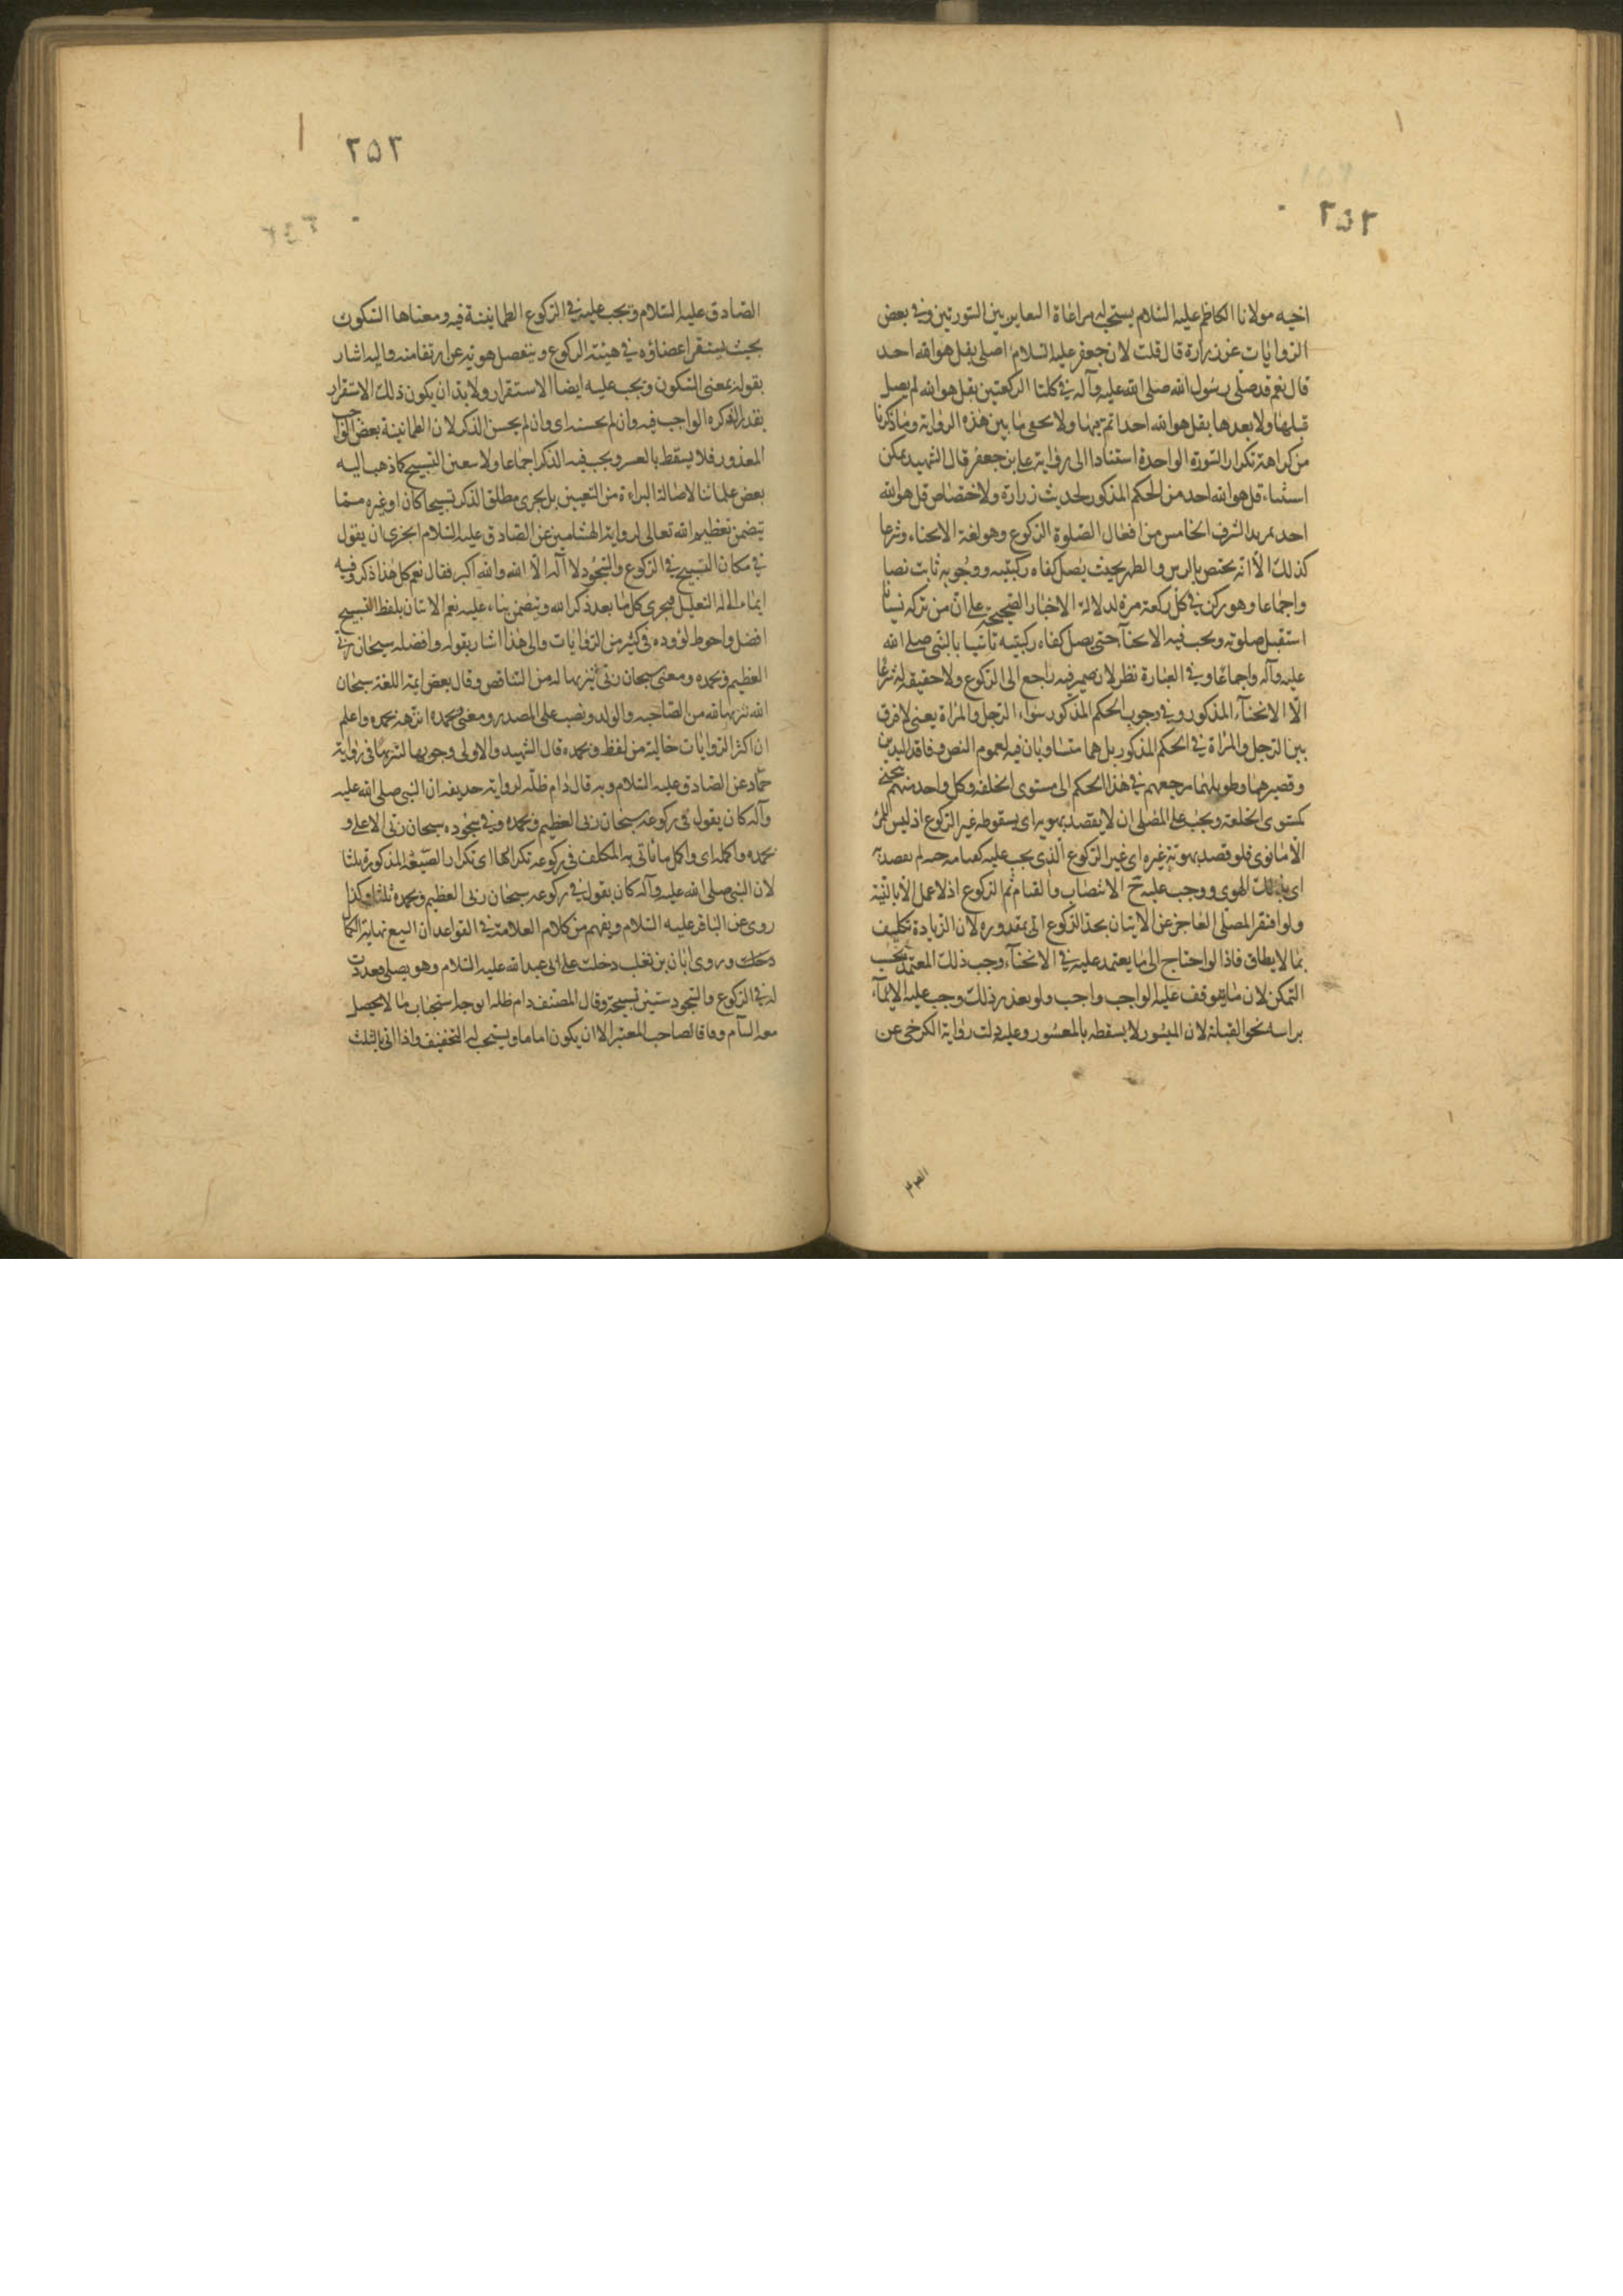 ٢٥٢
اخيه مولانا الكاظم عليه السّلام يستحب له مراعاة التغاير بين السّورتين وفي بعض
الرّوايات عن زرارة قال قلت لابي جعفر عليه السّلام اصلي بقل هو الله احد
قال نعم قد صلّى رسول الله صلى الله عليه وآله في كلتا الركعتين بقل هو الله لم يصل
قبلها ولا بعدها بقل هو الله احد اتم منها ولا يخفى ما بين هذه الرواية وما ذكرنا
من كراهة تكرار السّورة الواحدة استنادا الى رواية علي بن جعفر قال الشهيد يمكن
استثناء قل هو الله احد من الحكم المذكور لحديث زرارة ولاختصاص قل هو الله
احد بمزيد الشرف الخامس من افعال الصّلوة الرّكوع وهو لغة الانحناء وشرعا
كذلك الّا انّه يختص بالراس والظهر بحيث يصل كفاه ركبتيه ووجوبه ثابت نصا
واجماعا وهو ركن في كل ركعة مرة لدلالة الاخبار الصّحيحة على ان من تركه نسيانا
استقبل صلوته ويجب فيه الانحنآء حتى يصل كفاه ركبتيه تأسيا بالنبي صلى الله
عليه وآله واجماعًا وفي العبارة نظر لان ضمير فيه راجع الى الرّكوع ولا حقيقة له شرعًا
الّا الانحنآء المذكور وفي وجوب الحكم المذكور سواء الرّجل والمرأة يعني لا فرق
بين الرّجل والمرأة في الحكم المذكور بل هما متساويان فيه لعموم النص وفاقد اليدين
وقصيرهما وطويلهما مرجعهم في هذا الحكم الى مستوى الخلقة وكل واحد منهم ينحني
كمستوى الخلقة ويجب على المصلى ان لا يقصد بهويه اى بسقوطه غير الرّكوع اذ ليس للمرء
الّا ما نوى فلو قصد بهويّه غيره اى غير الرّكوع الّذي يجب عليه
اى بذلك الهوى ووجب عليه ح الانتصاب والقيام ثم الرّكوع اذ لا عمل الّا بالنيّة
ولو افتقر المصلّى العاجز عن الاتيان بحد الرّكوع الى مقدوره لان الزيادة تكليف
بما لا يطاق فاذا لو احتاج الى ما يعتمد عليه في الانحنآء وجب ذلك المعتمد بحسب
التمكن لان ما يتوقف عليه الواجب واجب ولو تعذر ذلك وجب عليه الايمآء
براسه نحو القبلة لان الميسور لا يسقط بالمعسور وعليه دلت رواية الكرخي عن
٢٥٣
الصّادق عليه السّلام ويجب عليه في الرّكوع الطمانينة فيه ومعناها السّكون
بحيث يستقر اعضاؤه في هيئة الركوع وينفصل هويّه عن ارتفاعه واليه اشار
بقوله بمعنى السّكون ويجب عليه ايضا الاستقرار ولا بد ان يكون ذلك الاستقرار
بقدر الذكر الواجب فيه وان لم يحسنه اى وان لم يحسن الذكر لان الطمانينة بعض الواجب
المعذور فلا يسقط بالعسر ويجب فيه الذكر اجماعا ولا يتعين التسبيح كما ذهب اليه
بعض علمائنا لاصالة البراءة من التعيين بل يجزى مطلق الذكر تسبيحا كان او غيره ممّا
يتضمن تعظيم الله تعالى لرواية الهشامين عن الصّادق عليه السّلام ايجزى ان يقول
في مكان التسبيح في الرّكوع والسّجود لا اله الّا الله والله اكبر فقال نعم كل هذا ذكر وفيه
ايماء الى التعليل فيجزى كل ما يعد ذكر الله ويتضمن ثناء عليه نعم الاتيان بلفظ التسبيح
افضل واحوط لوروده في كثير من الرّوايات والى هذا اشار بقوله وافضله سبحان ربّي
العظيم وبحمده ومعنى سبحان ربّي تنزيها له من النّقائص وقال بعض ائمة اللغة سبحان
الله تنزيها لله من الصّاحبة والولد ونصب على المصدر ومعنى وبحمده انزّهه بحمده واعلم
ان اكثر الرّوايات خالية من لفظ وبحمده قال الشهيد والاولى وجوبها لثبوتها في رواية
حمّاد عن الصّادق عليه السّلام وبه قال دام ظلّه لرواية حذيفة ان النبي صلى الله عليه
وآله كان يقول في ركوعه سبحان ربّي العظيم وبحمده وفي سجوده سبحان ربّي الاعلى و
بحمده واكمله اى واكمل ما ياتي به المكلف في ركوعه تكرارها اى تكرار الصّيغة المذكورة ثلثا
لان النبي صلى الله عليه وآله كان يقول في ركوعه سبحان ربّي العظيم وبحمده ثلثا وكذا
روى عن الباقر عليه السّلام ويفهم من كلام العلامة في القواعد ان السبع نهاية الكمال
وروى ابان بن تغلب دخلت على ابي عبد الله عليه السّلام وهو يصلي فعددت
له في الرّكوع والسّجود ستين تسبيحة وقال المصنف دام ظله الوجه استحباب ما لا يحصل
معه السّأم وفاقا لصاحب المعتبر الا ان يكون اماما ويستحب له التخفيف واذا اتى بالثلث